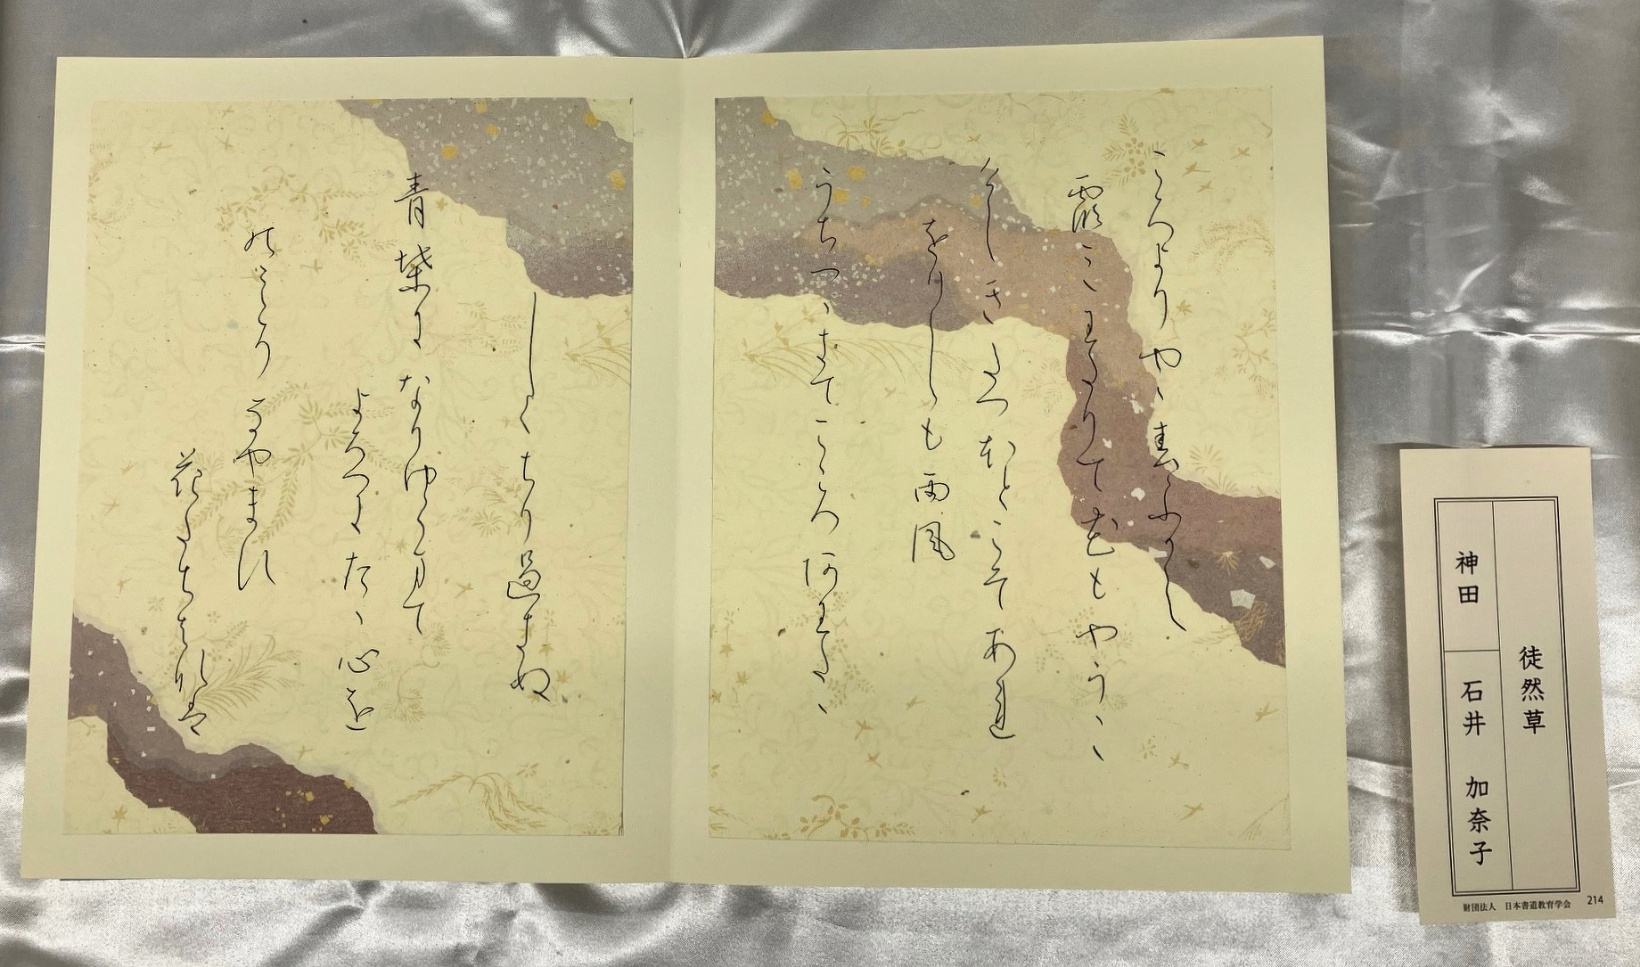 ころよりやゝ春ふかく
霞みわたりて花もやうゝゝ
けしきたつほとこそあれ
をりしも雨風
うちつゝきてこころあわたゝ
しくちり過きぬ
青葉になりゆくまて
よろつにたゝ心を
のみそなやます
花たちはなは
徒然草
神田 石井 加奈子
財団法人 日本書道教育学会 214